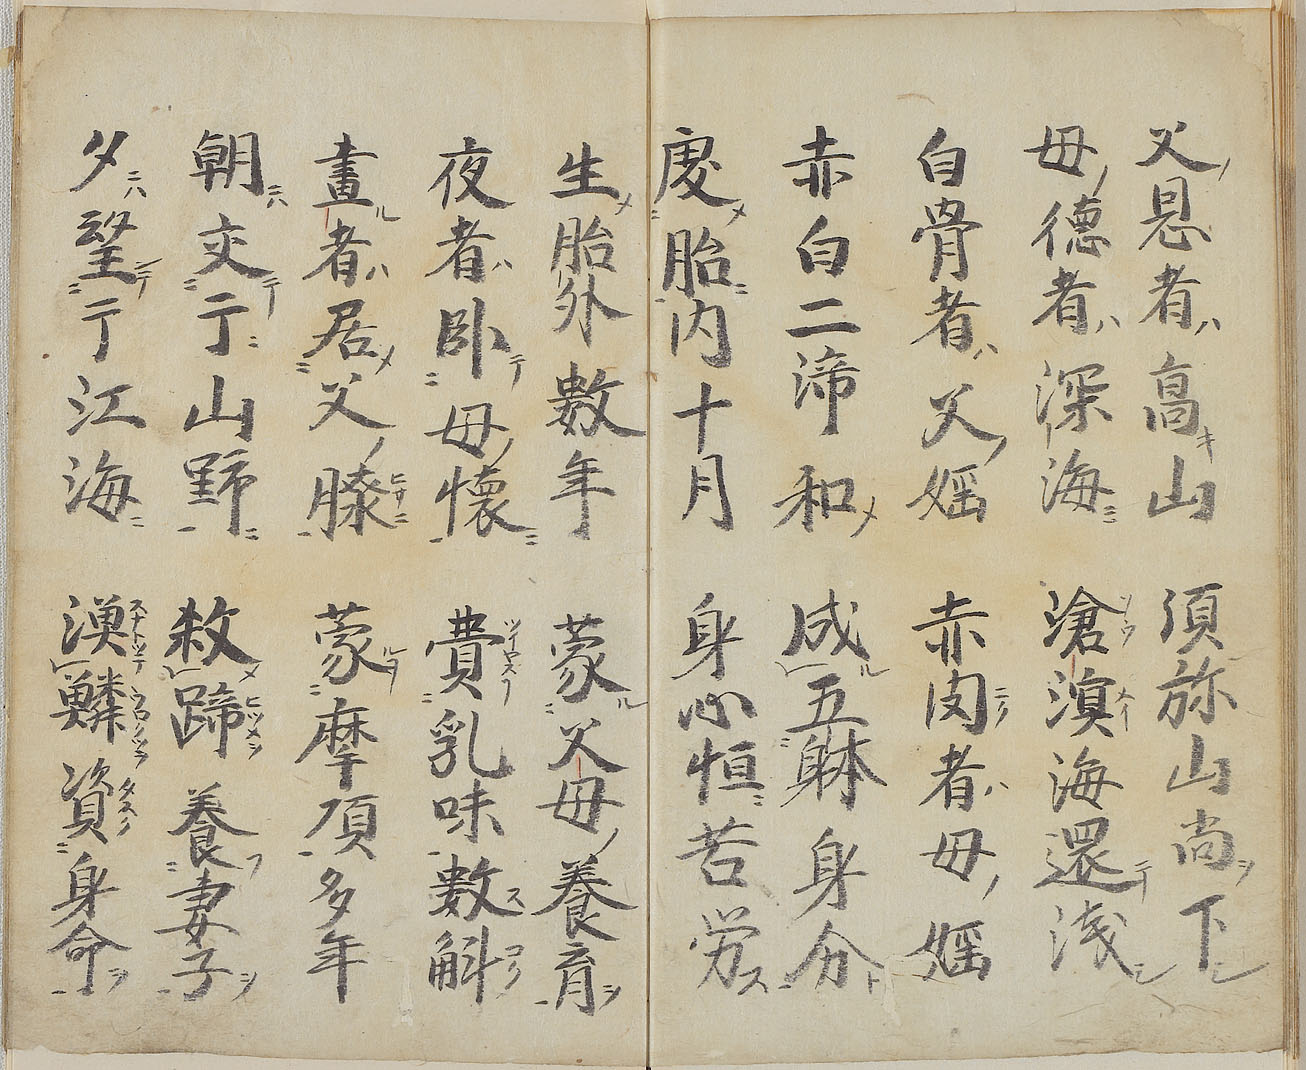 父恩者高山　須弥山尚下
母徳者深海　滄溟海還浅
白骨者父婬　赤肉者母婬
赤白二渧和　成五躰身分
處胎内十月　身心恒苦労
生胎外數年　蒙父母養育
夜者卧母懐　費乳味数斛
晝者居父膝　蒙摩頂多年
朝交于山野　殺蹄養妻子
夕望于江海　漁鱗資身命